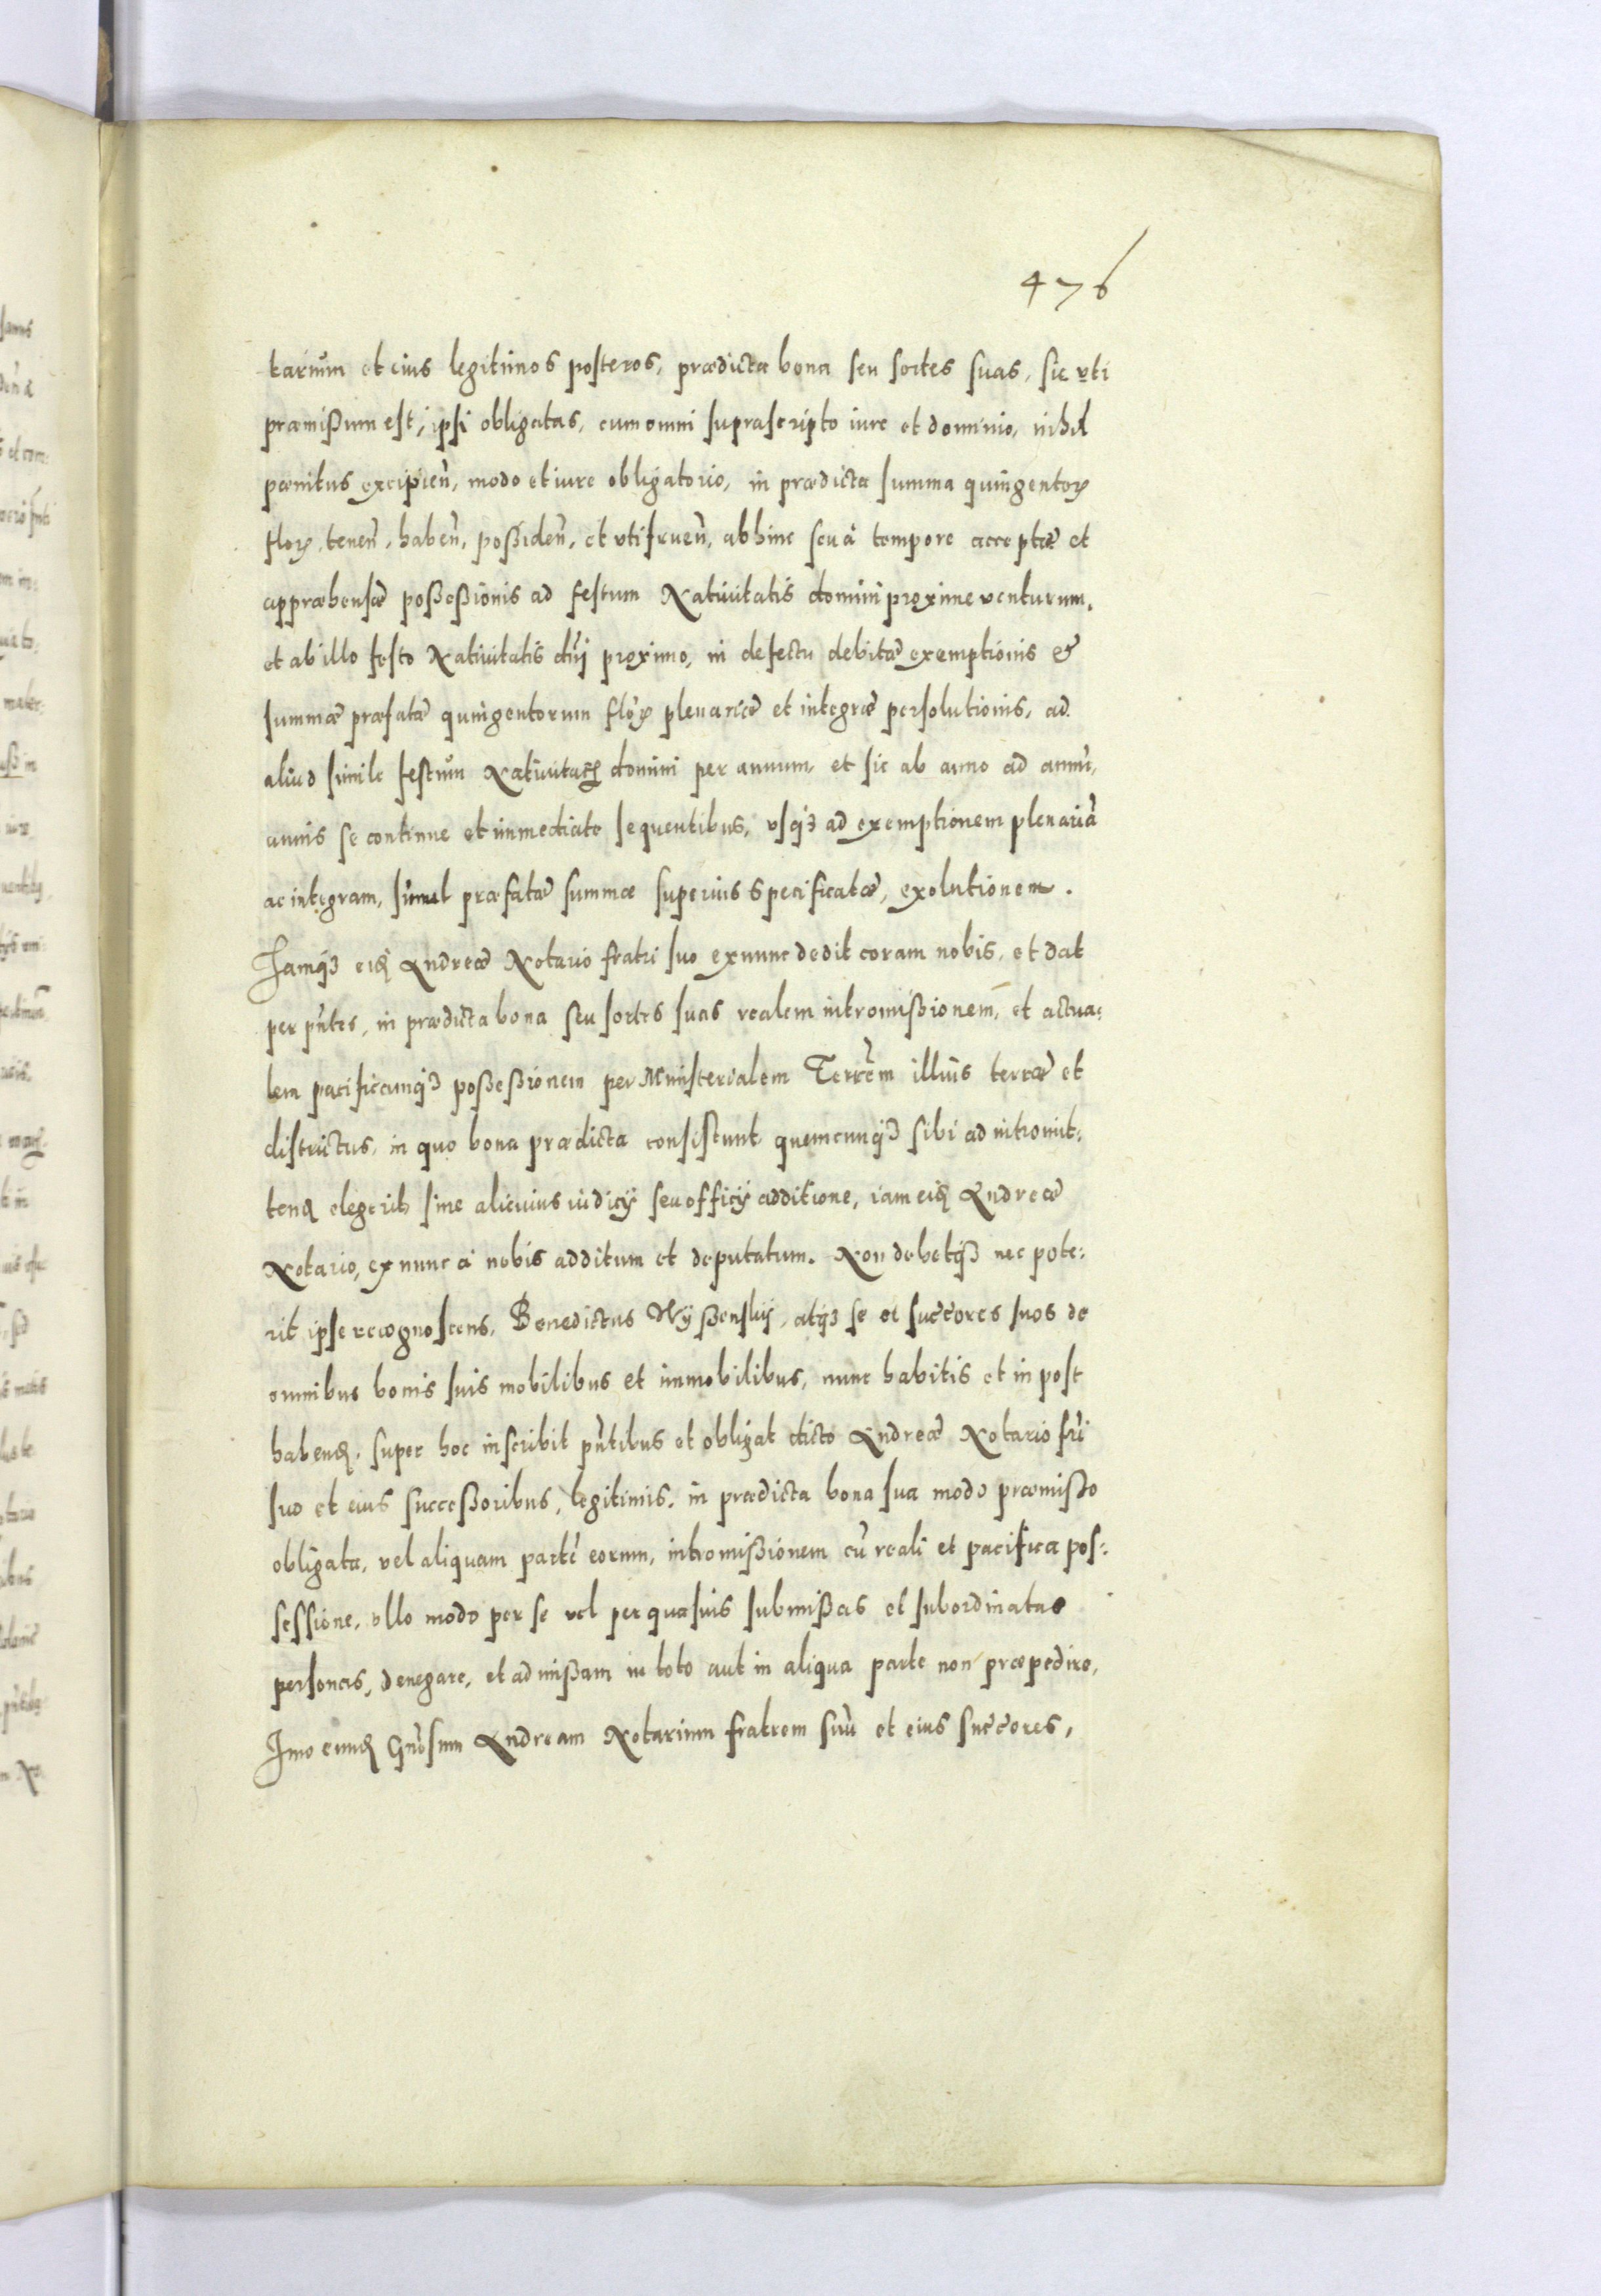 476
tarium et eius legitimos posteros, prædicta bona seu sortes suas, sic uti
præmißum est, ipsi obligatas, cum omni suprascripto iure et dominio, nihil
pænitus excipien̄, modo et iure obligatorio, in prædicta summa quingentoꝝ
floꝝ, tenen̄, haben̄, poßiden̄, et vtifruen̄, abhinc seu à tempore acceptæ et
appræhensæ poßeßionis ad festum Natiuitatis domini proxime venturum,
et ab illo festo Natiuitatis dn̄i proximo, in defectu debitæ exemptionis &
summæ præfatæ quingentorum floꝝ plenariæ et integræ persolutionis, ad
aliud simile festum Natiuitatis domini per annum, et sic ab anno ad annū,
annis se continue et immediate sequentibus, vsqꝫ ad exemptionem plenariā
ac integram, simul præfatæ summæ superius specificatæ, exolutionem.
Iamqꝫ eid̄ Andreæ Notario fratri suo exnunc dedit coram nobis, et dat
per pn̄tes, in prædicta bona seu sortes suas realem intromißionem, et actua:
lem pacificamqꝫ poßeßionem per Ministerialem Terrēm illius terræ et
districtus, in quo bona prædicta consistunt quemcunqꝫ sibi ad intromit:
tend̄ elegerit sine alicuius iudicÿ seu officÿ additione, iam eid̄ Andreæ
Notario, ex nunc à nobis additum et deputatum. Non debetqꝫ nec pote:
rit ipse recognoscens, Benedictus Wyßenskÿ, atqꝫ se et succores suos de
omnibus bonis suis mobilibus et immobilibus, nunc habitis et in post
habend̄, super hoc inscribit pn̄tibus et obligat dicto Andreæ Notario frī
suo et eius succeßoribus, legitimis, in prædicta bona sua modo præmißo
obligata, vel aliquam partē eorum, intromißionem cū reali et pacifica pos:
sessione, vllo modo per se vel per quasuis submißas et subordinatas
personas, denegare, et admißam in toto aut in aliqua parte non præpedire,
Imo eund̄ Gn̄osum Andream Notarium fratrem suū et eius succores,